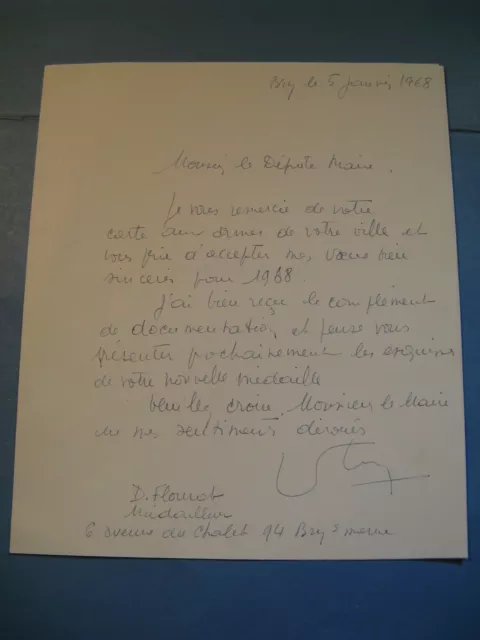 Bry le 5 Janvier 1968
Monsieur le Député Maire.
Je vous remercie de votre
carte aux armes de votre ville et
vous prie d'accepter mes vœux bien
sincères pour 1968.
J'ai bien reçu le complément
de documentation et pense vous
présenter prochainement les esquisses
de votre nouvelle médaille
Veuillez croire, Monsieur le Maire
en mes sentiments dévoués
Médailleur
6 avenue du Chalet 94 Bry s marne